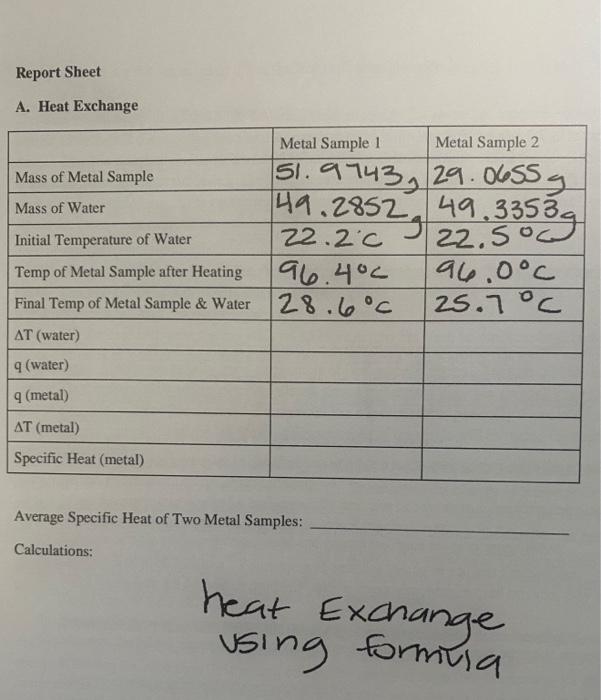 Report Sheet
A. Heat Exchange
Metal Sample 1 Metal Sample 2
Mass of Metal Sample 51.9743g 29.0655g
Mass of Water 49.2852g 49.3353g
Initial Temperature of Water 22.2°C 22.5°C
Temp of Metal Sample after Heating 96.4°C 96.0°C
Final Temp of Metal Sample & Water 28.6°C 25.7°C
ΔT (water)
q (water)
q (metal)
ΔT (metal)
Specific Heat (metal)
Average Specific Heat of Two Metal Samples:
Calculations:
heat Exchange
using formula